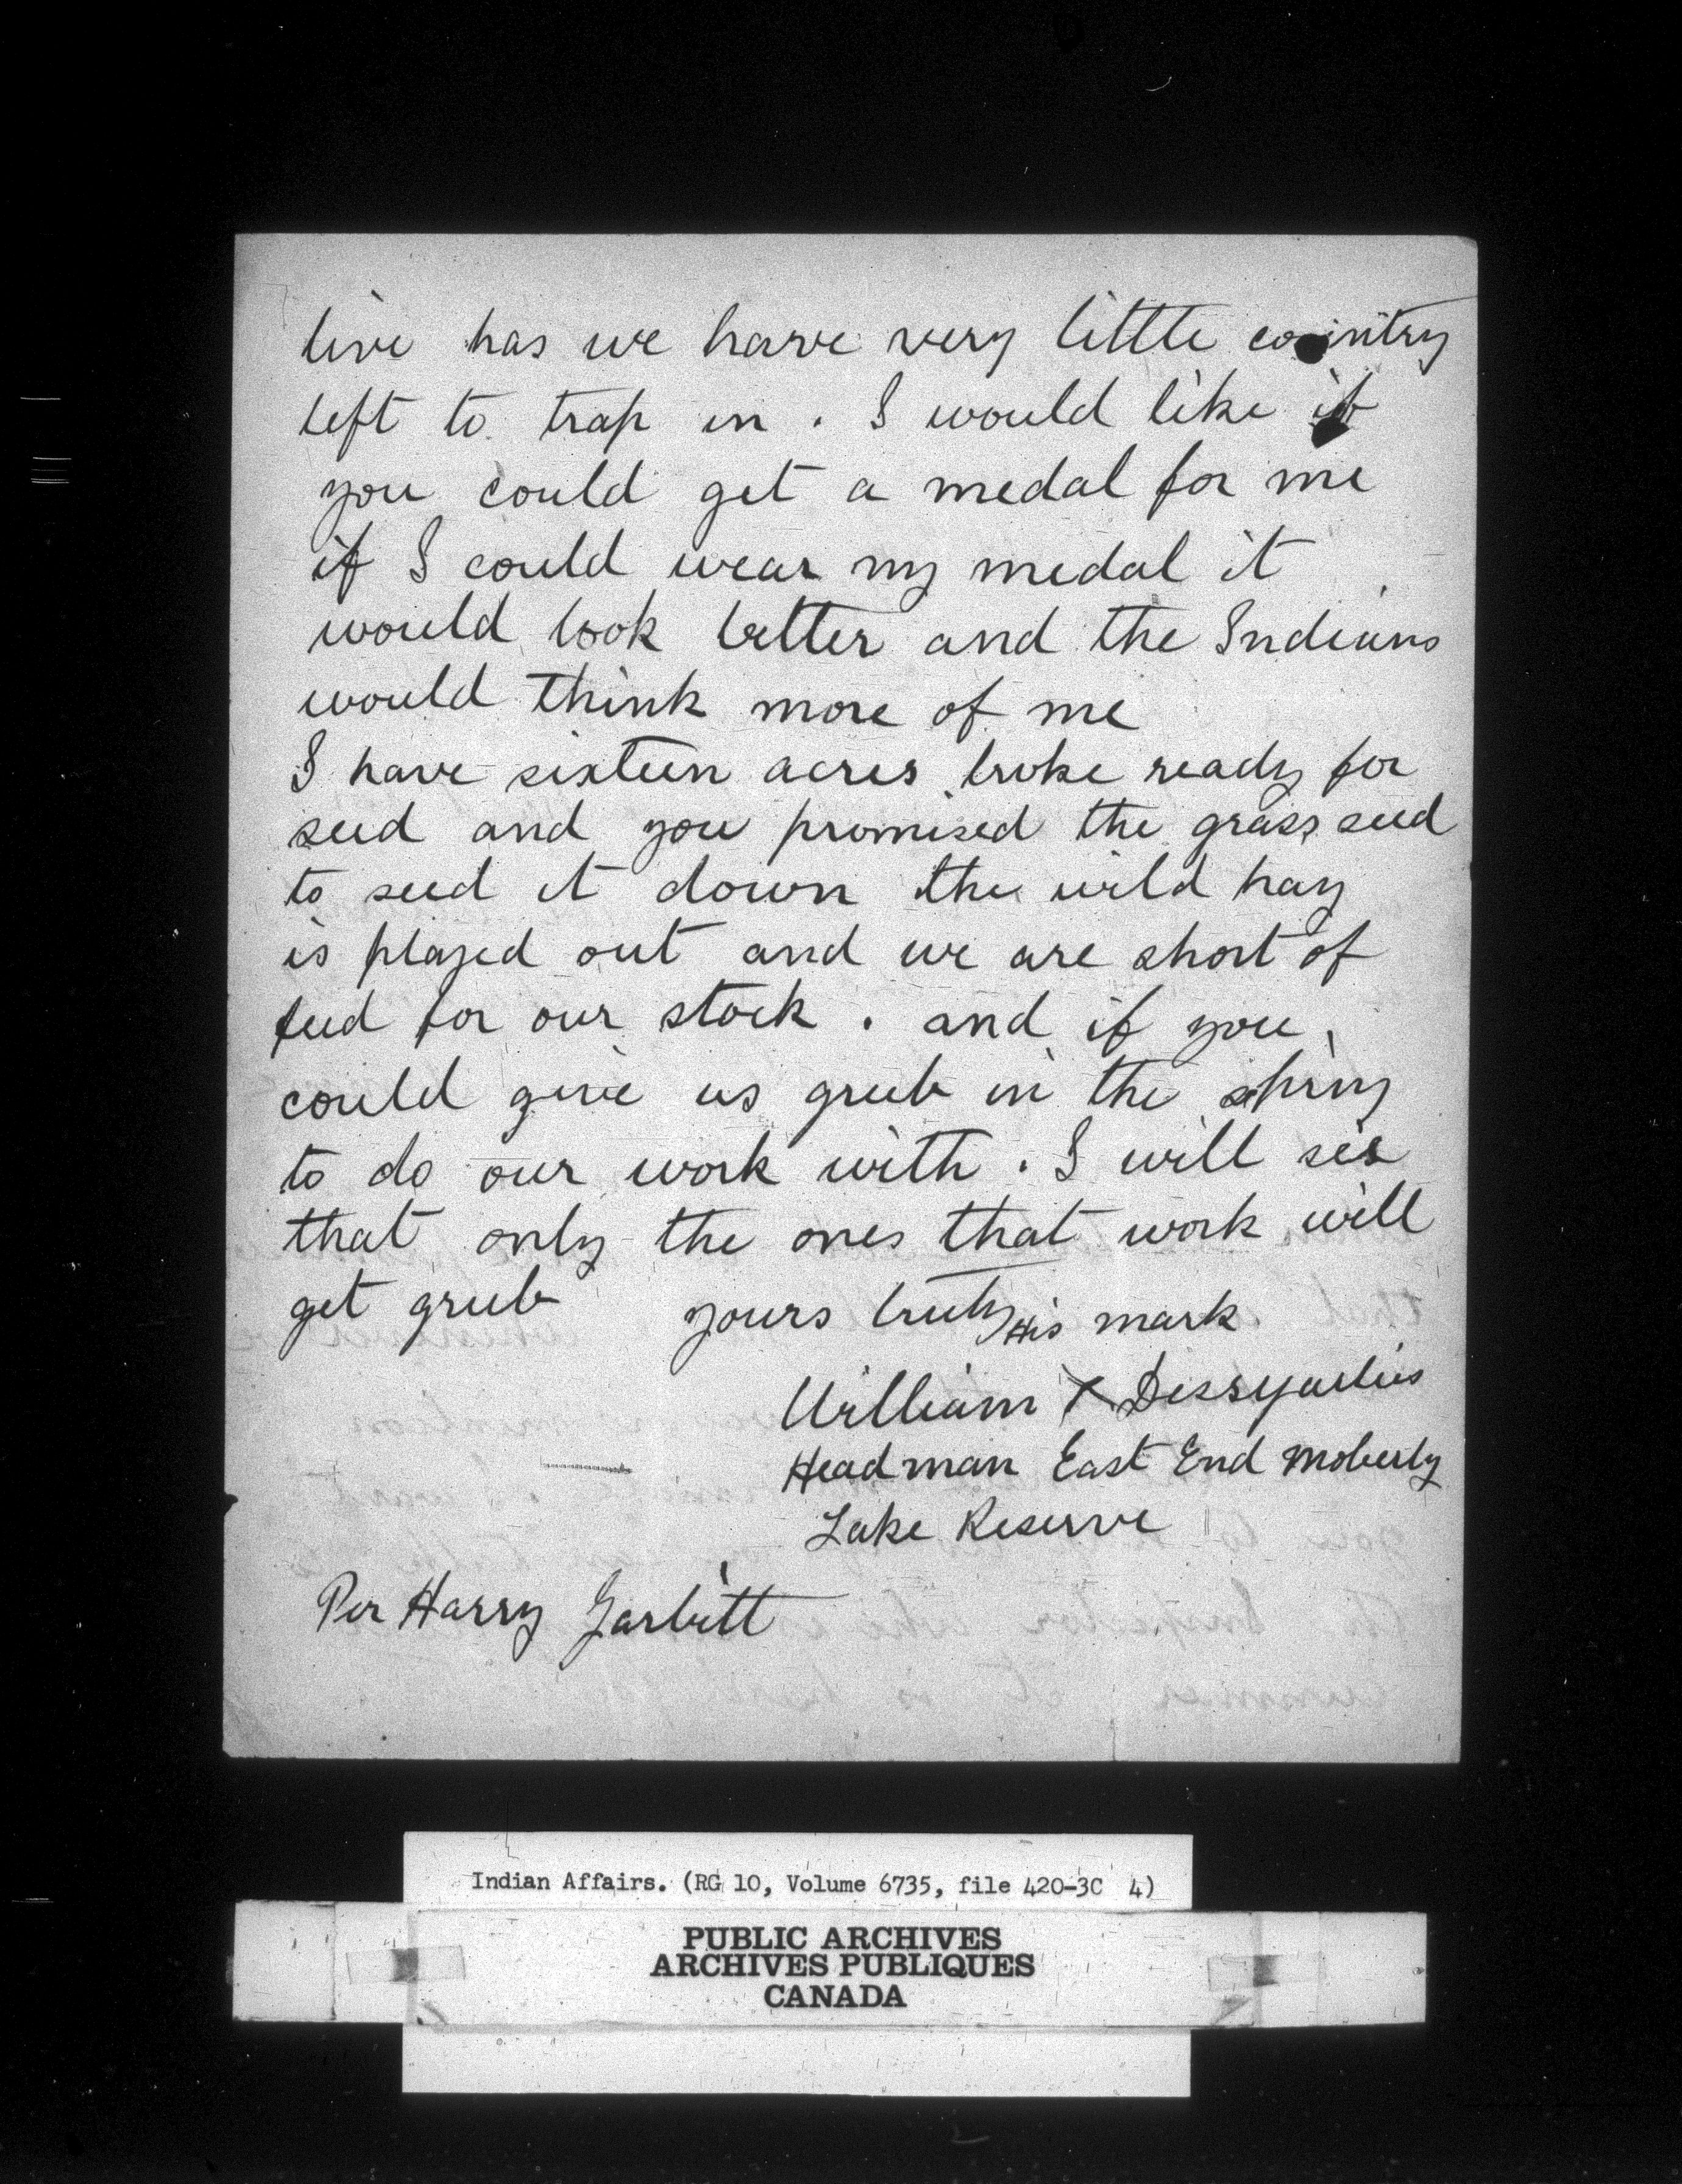 live has we have very little country
left to trap in. I would like if
you could get a medal for me
if I could wear my medal it
would look better and the Indians
would think more of me
I have sixteen acres broke ready for
seed and you promised the grass seed
to seed it down the wild hay
is played out and we are short of
feed for our stock. and if you
could give us grub in the spring
to do our work with. I will see
that only the ones that work will
get grub yours truly His mark
William X
Headman East End Moberly
Lake Reserve
Per Harry Garbitt
Indian Affairs. (RG 10, Volume 6735, file 420-3C 4)
PUBLIC ARCHIVES
ARCHIVES PUBLIQUES
CANADA